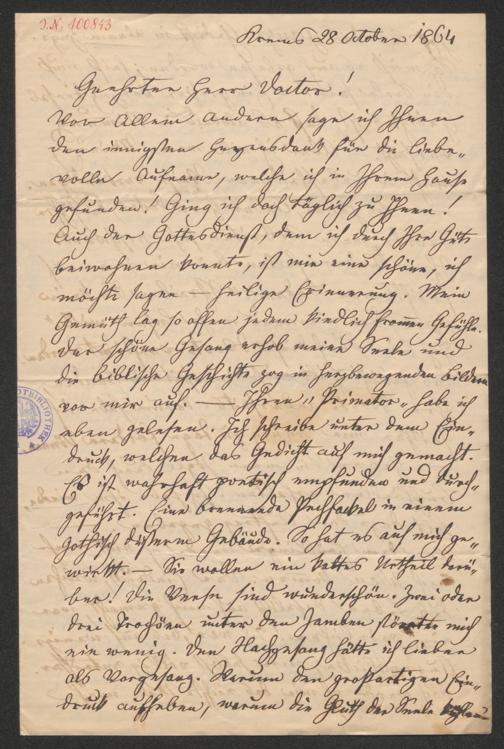 J.N. 100843
Krems 28 October 1864
Geehrter Herr Doctor!
Vor Allem Andern sage ich Ihnen
den innigsten Herzensdank für die liebe-
volle Aufname, welche ich in Ihrem Hause
gefunden! Ging ich doch täglich zu Ihnen!
Auch der Gottesdienst, dem ich durch Ihre Güte
beiwohnen konnte, ist mir eine schöne, ich
möchte sagen — heilige Erinnerung. Mein
Gemüth lag so offen jedem kindlich frommen Gefühle.
Der schöne Gesang erhob meine Seele und
die biblische Geschichte zog in herzbewegenden Bildern
vor mir auf. — Ihren „Primator" habe ich
eben gelesen. Ich schreibe unter dem Ein-
druck, welchen das Gedicht auf mich gemacht.
Es ist wahrhaft poetisch empfunden und durch-
geführt. Eine brennende Pechfackel in einem
gothisch düsterm Gebäude. So hat es auf mich ge-
wirkt. — Sie wollen ein kaltes Urtheil darü-
ber! Die Verse sind wunderschön. Zwei oder
drei Trochäen unter den Jamben störten mich
ein wenig. Den Nachgesang hätte ich lieber
als Vorgesang. Warum den großartigen Ein-
druck aufheben, warum die Gluth der Seele kühlen?
BIBLIOTHEK